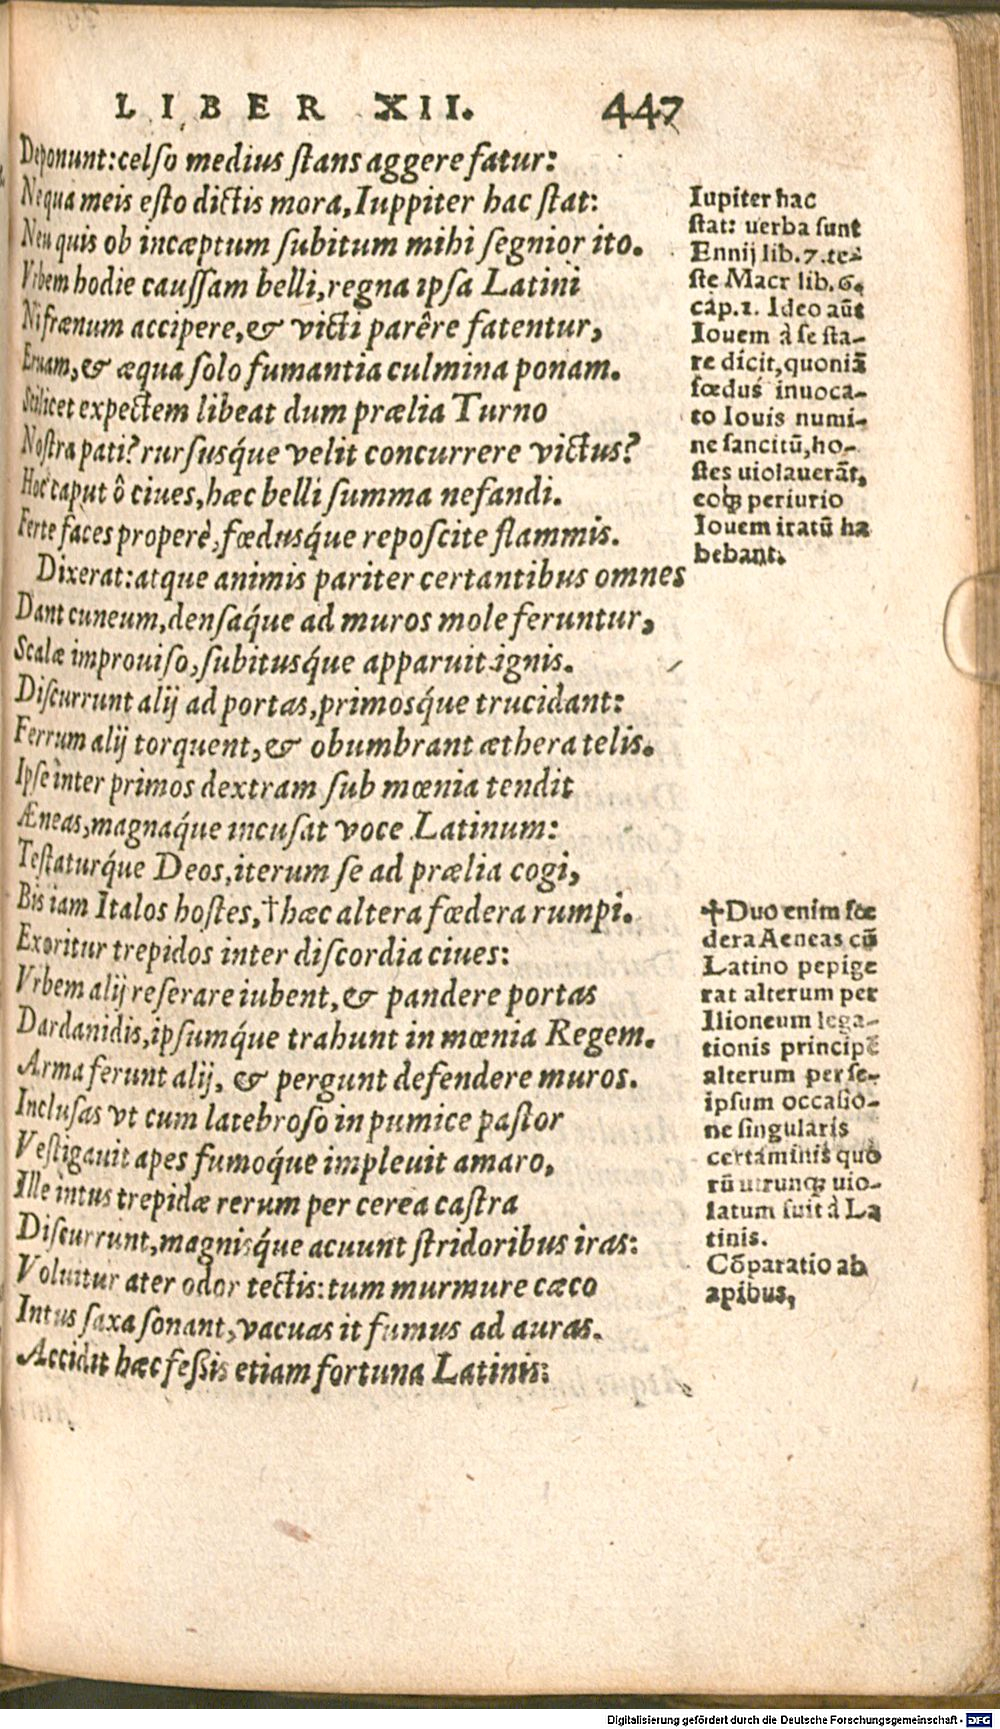 LIBER XII. 447
Deponunt: celso medius stans aggere fatur:
Ne qua meis esto dictis mora, Iuppiter hac stat:
Neu quis ob incæptum subitum mihi segnior ito.
Vrbem hodie caussam belli, regna ipsa Latini
Ni frænum accipere, & victi parêre fatentur,
Eruam, & æqua solo fumantia culmina ponam.
Scilicet expectem libeat dum prælia Turno
Nostra pati? rursusq́ue velit concurrere victus?
Hoc caput ô ciues, hæc belli summa nefandi.
Ferte faces properè, fœdusq́ue reposcite flammis.
Dixerat: atque animis pariter certantibus omnes
Dant cuneum, densaq́ue ad muros mole feruntur,
Scalæ improuiso, subitusq́ue apparuit ignis.
Discurrunt alij ad portas, primosq́ue trucidant:
Ferrum alij torquent, & obumbrant æthera telis.
Ipse inter primos dextram sub mœnia tendit
Æneas, magnaq́ue incusat voce Latinum:
Testaturq́ue Deos, iterum se ad prælia cogi,
Bis iam Italos hostes, † hæc altera fœdera rumpi.
Exoritur trepidos inter discordia ciues:
Vrbem alij reserare iubent, & pandere portas
Dardanidis, ipsumq́ue trahunt in mœnia Regem.
Arma ferunt alij, & pergunt defendere muros.
Inclusas vt cum latebroso in pumice pastor
Vestigauit apes fumoq́ue impleuit amaro,
Ille intus trepidæ rerum per cerea castra
Discurrunt, magnisq́ue acuunt stridoribus iras:
Voluitur ater odor tectis: tum murmure cæco
Intus saxa sonant, vacuas it fumus ad auras.
Accidit hæc fessis etiam fortuna Latinis:
Iupiter hac
stat: uerba sunt
Ennij lib. 7. te-
ste Macr lib. 6.
cap. 1. Ideo aũt
Iouem à se sta-
re dicit, quoniã
fœdus inuoca-
to Iouis numi-
ne sancitũ, ho-
stes uiolauerãt,
eoq́; periurio
Iouem iratũ ha
bebant.
✝Duo enim fœ
dera Aeneas cũ
Latino pepige
rat alterum per
Ilioneum lega-
tionis principẽ
alterum per se-
ipsum occasio-
ne singularis
certaminis quo
rũ utrunq; uio-
latum fuit à La
tinis.
Cõparatio ab
apibus,
Digitalisierung gefördert durch die Deutsche Forschungsgemeinschaft - DFG